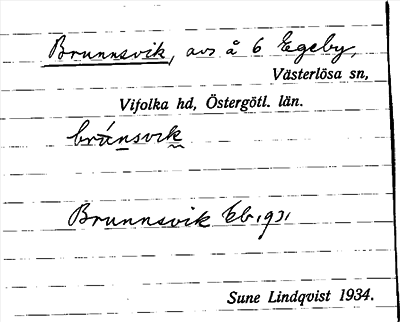 Brunnsvik, avs å 6 Egeby,
Västerlösa sn,
Vifolka hd, Östergötl. län.
bránsvik
Brunnsvik Eb. 1931
Sune Lindqvist 1934.